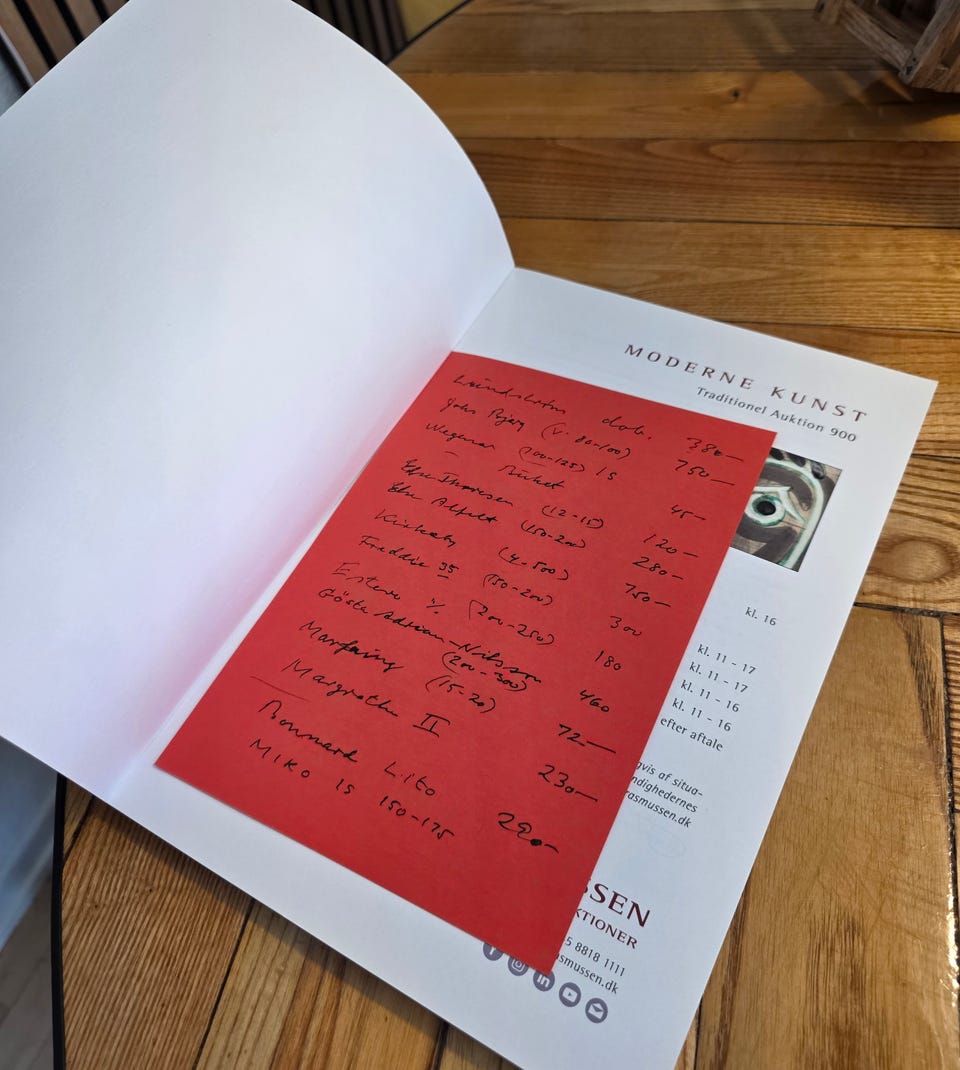 MODERNE KUNST
Traditionel Auktion 900
dob. 380-
(V. 80-100) 750-
Wegener (100-125) 15
Buket 45-
Thoresen (12-15) 120-
Alfelt (150-200) 280-
Kirkeby (4-500) 750-
Freddie 35 (150-200) 300
Esteve % (200-250) 180
Gösta Adrian-Nilsson 460
(200-300)
Marfaing (15-20) 72-
Margrethe II 230-
Bonnard Lito 220-
MIRO 15 150-175
kl. 16
kl. 11 - 17
kl. 11 - 17
kl. 11 - 16
kl. 11 - 16
efter aftale
gvis af situa-
ndighedernes
rasmussen.dk
SSEN
KTIONER
5 8818 1111
smussen.dk